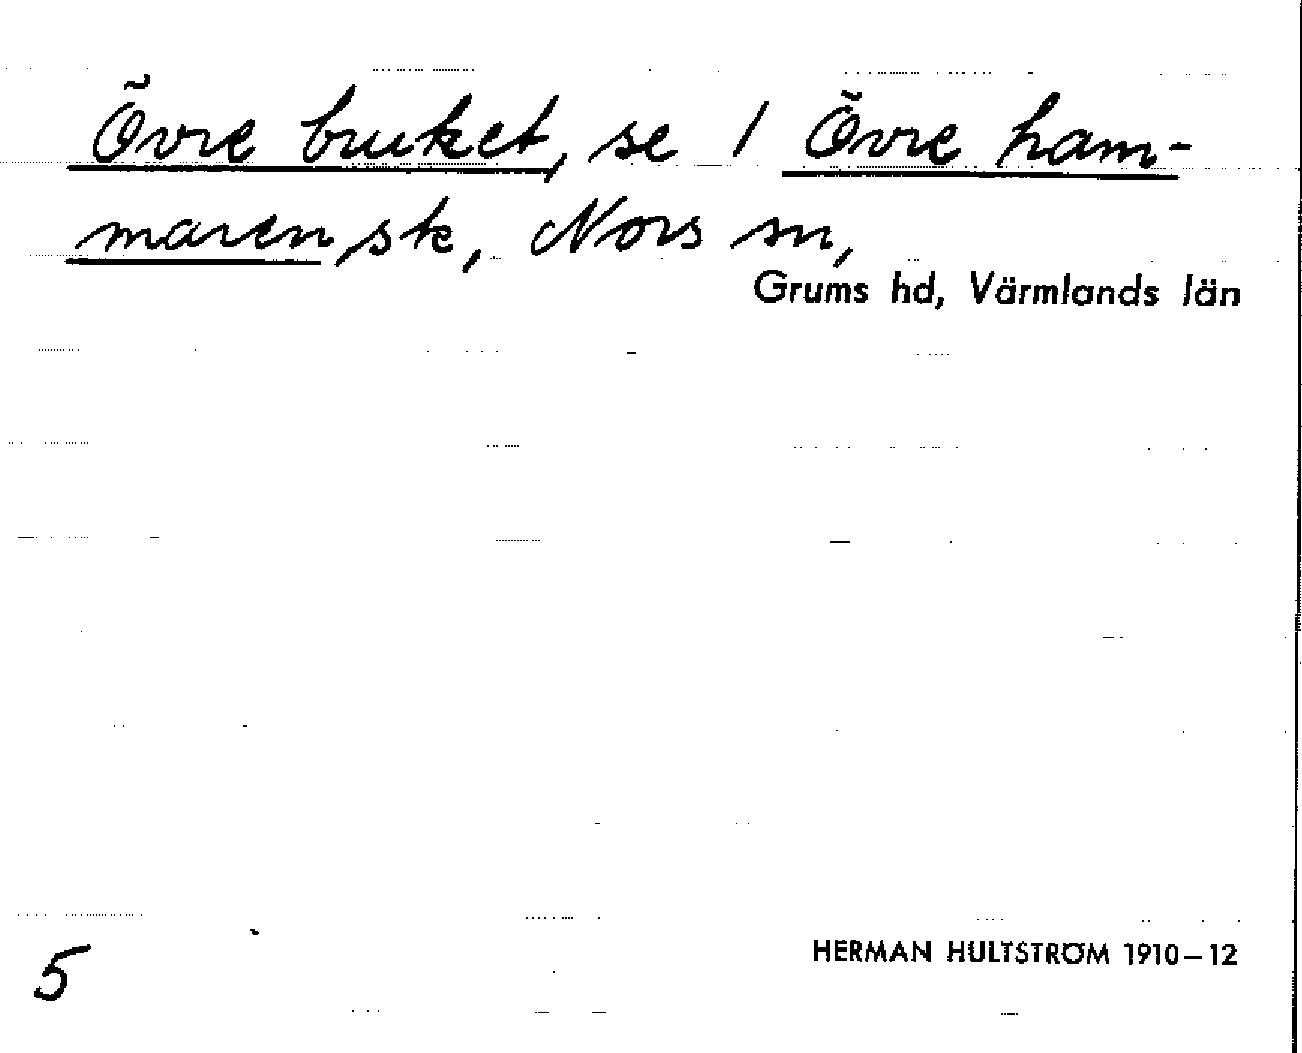 Övre bruket, se 1 Övre ham-
maren, sk, Nors sn,
Grums hd, Värmlands län
HERMAN HULTSTRÖM 1910–12
5